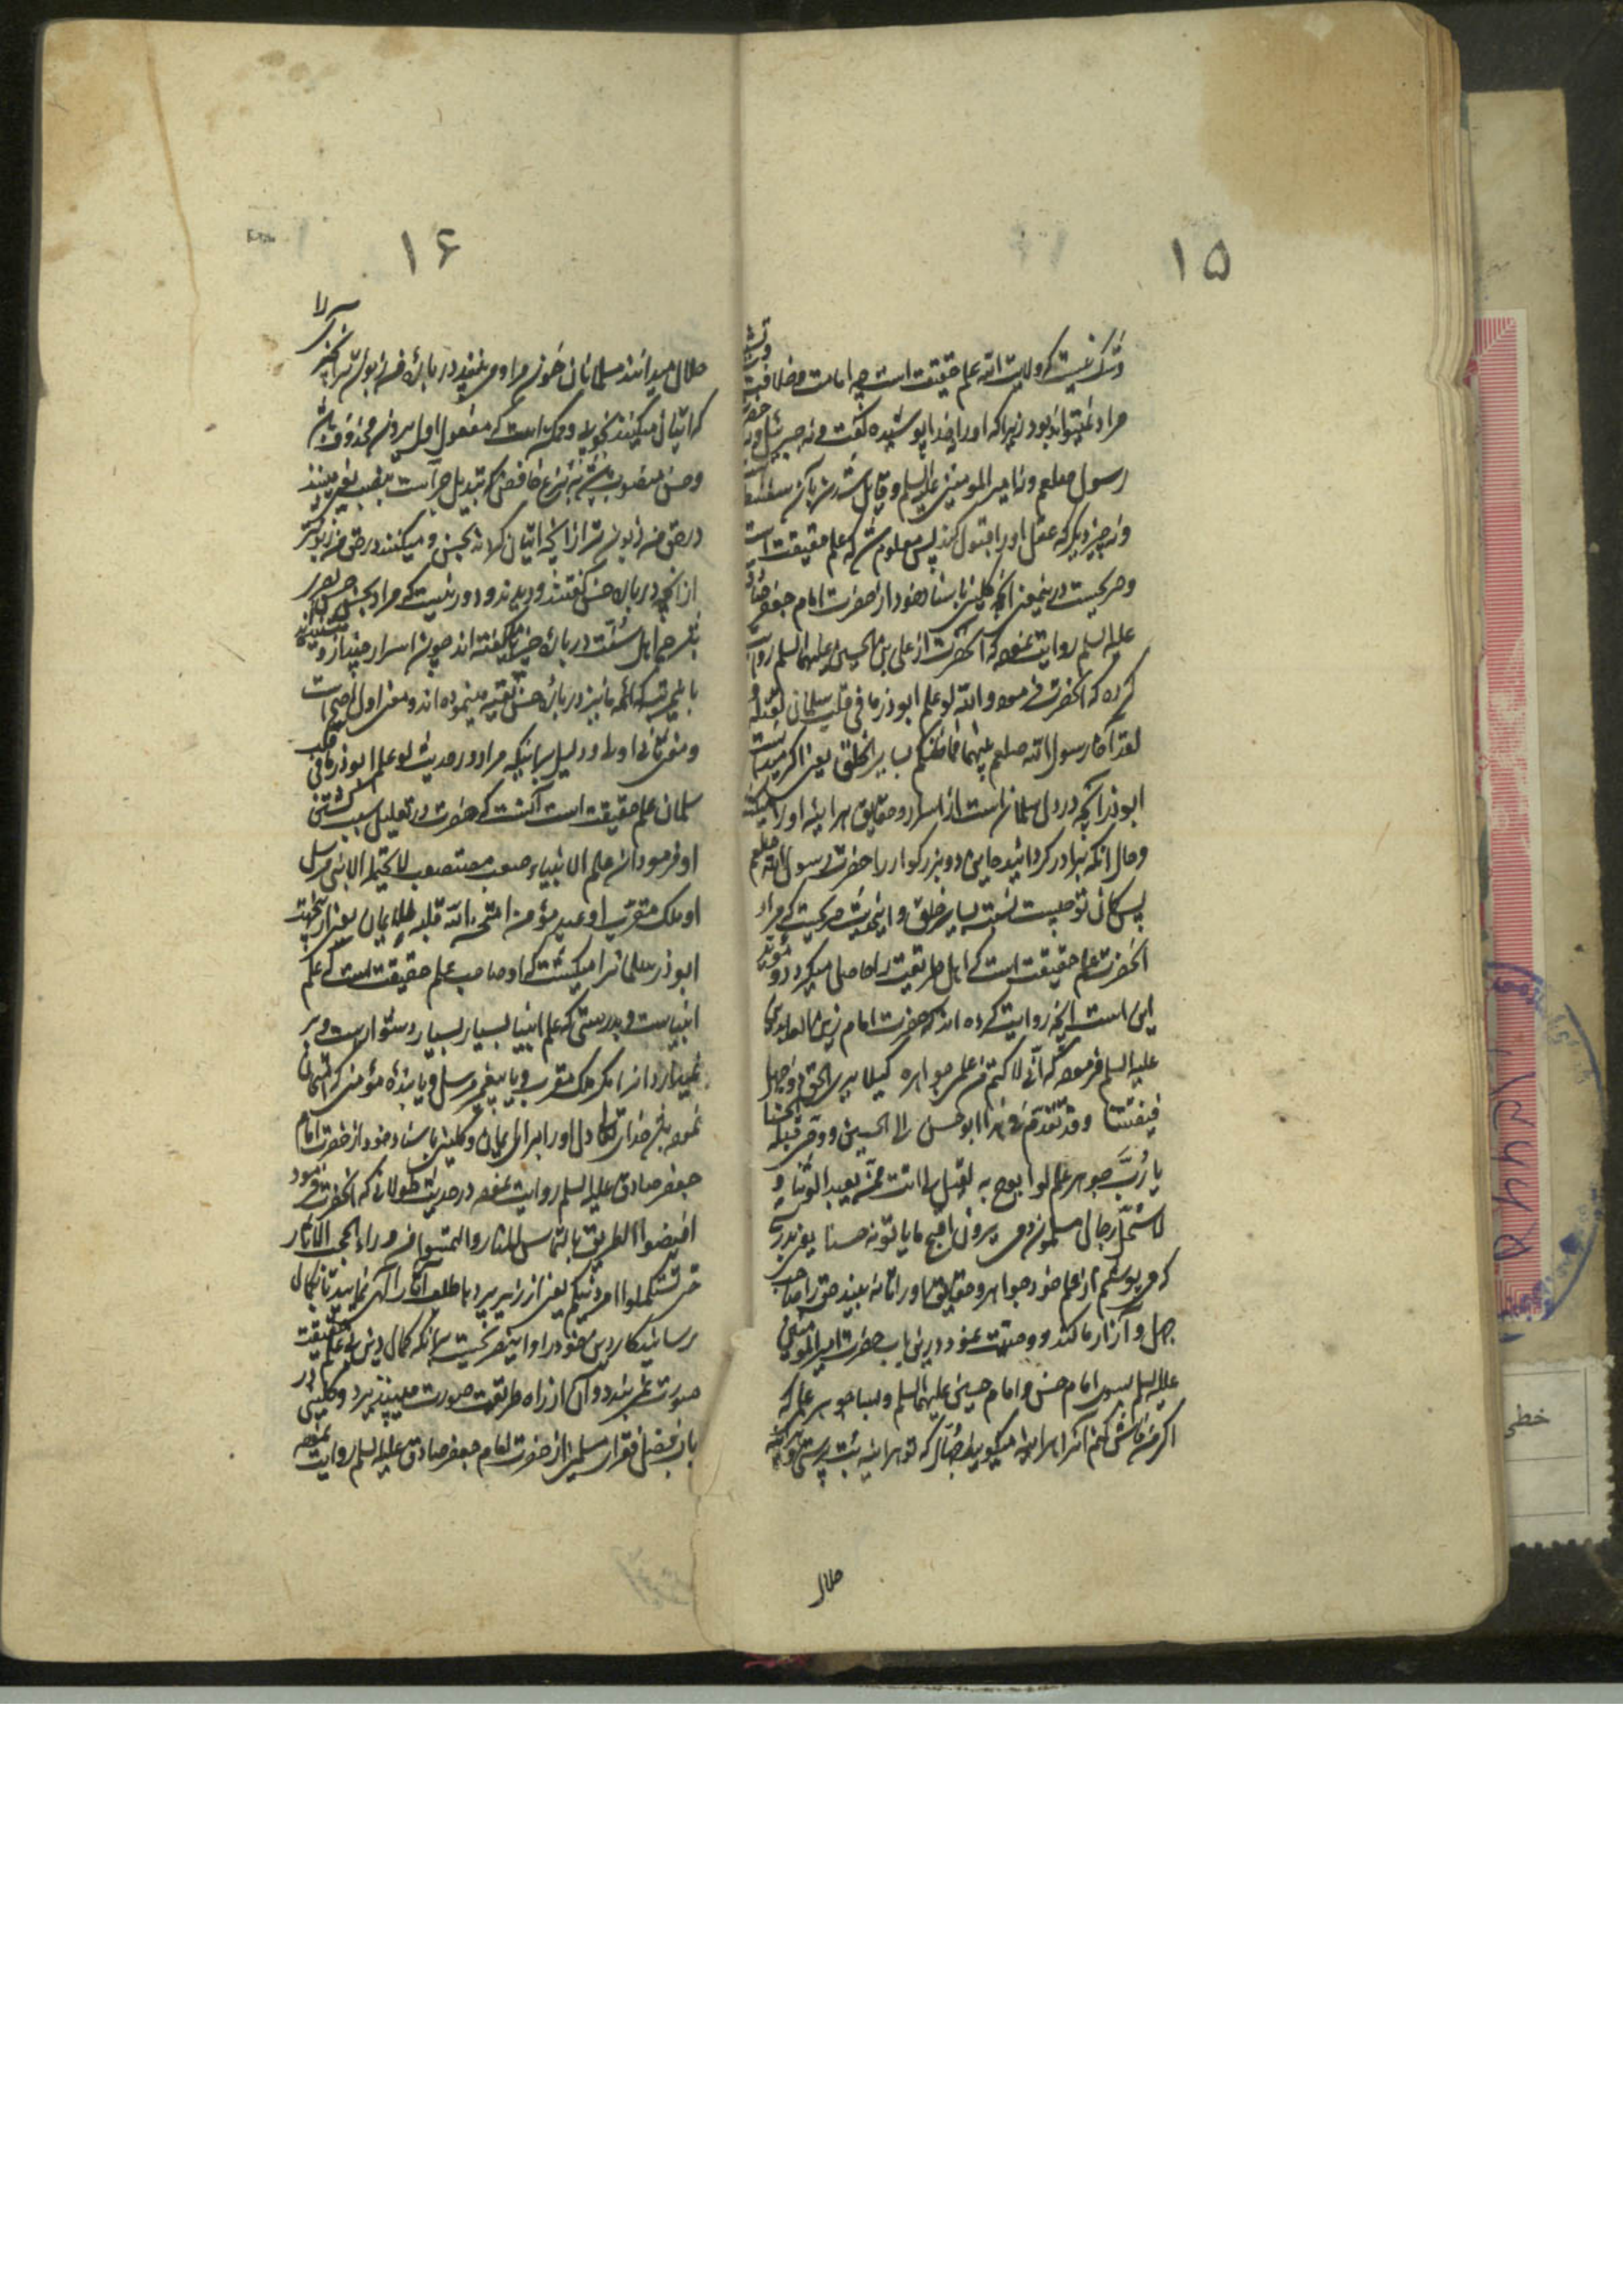 ۱۵
وشک نیست که ولایت الله علم حقیقت است چه امامت و خلافت
مراد نمیتواند بود زیرا که او را خدا پوشیده نگفت و نه جبرئیل و نه حضرت
رسول صلعم و نه امیر المومنین علیه السلم و قایل شدن بآن سفسطه است
و نه چیز دیگر که عقل او را قبول کند پس معلوم شد که علم حقیقت است
و صریحست درینمعنی آنچه کلینی باسناد خود از حضرت امام جعفر صادق
علیه السلم روایت نموده که آنحضرت از علی بن الحسین علیهما السلم روایت
کرده که آنحضرت فرموده والله لو علم ابوذر ما فی قلب سلمان لقتله و
لقد آخا رسول الله صلعم بینهما فما ظنکم بسایر الخلق یعنی اگر میدانست
ابوذر آنچه در دل سلمانست از اسرار و حقایق هرآینه او را میکشت
و حال آنکه برادر گردانید میان این دو بزرگوار را حضرت رسول الله صلعم
پس گمان تو چیست نسبت بسایر خلق و اینحدیث صریحست که مراد
آنحضرت علم حقیقت است که اهل طریقت را حاصل میگردد و مؤید
این است آنچه روایت کرده اند که حضرت امام زین العابدین
علیه السلم فرموده که انّی لاکتم من علمی جواهره کیلا یری الحق ذو جهل
فیفتتنا وقد تقدّم فی هذا ابوحسن الی الحسین ووصّی قبله الحسنا
یا رُبّ جوهر علم لو ابوح به لقیل لی انت ممّن یعبد الوثنا و
لاستحلّ رجال مسلمون دمی یرون اقبح ما یاتونه حسنا یعنی بدرستی
که می پوشم از علم خود جواهر و حقایق او را تا نه بیند حق را صاحب
جهل و آزار ما کند و وصیّت نمود درین باب حضرت امیر المومنین
علیه السلم بسوی امام حسن و امام حسین علیهما السلم و بسا جوهر علم که
اگر من فاش کنم آنرا هرآینه میگویند جهّال که تو هرآینه بت پرستی و هرآینه
حلال
۱۶
حلال میدانند مسلمانان خون مرا و می بینند در باره من زبون تر آنچیز را
که ایشان میکنند خوب و ممکن است که مفعول اول یرون محذوف باشد
و حسن منصوب باشد به نزع خافض که تبدیل جر است بنصب یعنی می بینند
در حق من زبون تر از آنچه ایشان کرده اند بحسن و میکنند در حق من زبونتر
از آنچه در باره حسن گفتند و دیدند و دور نیست که مراد بحسن حسن بصری
باشد چه اهل سنّت در باره حسن بد گفته اند چون اسرار چنداز و شنیده اند
باینمرتبه که ائمه ما نیز در باره حسن تقیه مینموده اند و معنی اول اصح است
و معنی ثانی اولی و دلیل برآنکه مراد در حدیث لو علم ابوذر ما فی قلب
سلمان علم حقیقت است آنست که حضرت در تعلیل سبب کشتن
او فرموده ان علم الانبیاء صعب مستصعب لا یحتمله الا نبی مرسل
او ملک مقرّب او عبد مؤمن امتحن الله قلبه للایمان یعنی ازینجهت
ابوذر سلمانرا میکشت که او صاحب علم حقیقت است که علم
انبیاست و بدرستی که علم انبیا بسیار بسیار دشوارست و بر
نمیدارد آنرا مگر ملک مقرب و یا پیغمبر مرسل و یا بنده مؤمنی که امتحان
نموده باشد خدای تعالی دل او را برای ایمان و کلینی باسناد خود از حضرت امام
جعفر صادق علیه السلم روایت نموده در حدیث طولانی که آنحضرت فرمود
افیضوا الطریق بالتماس المنار والتمسوا من وراء الحجب الآثار
حتی تستکملوا امر دینکم یعنی از زیر پرده ها طلب آثار الهی نمایید تا بکمال
رسانید کار دین خود را و اینصریحست برآنکه کمال دین بی علم حقیقت
صورت نمی بندد و آن از راه طریقت صورت می پذیرد و کلینی در
باب فضل فقراء مسلمین از حضرت امام جعفر صادق علیه السلم روایت نموده
خطی